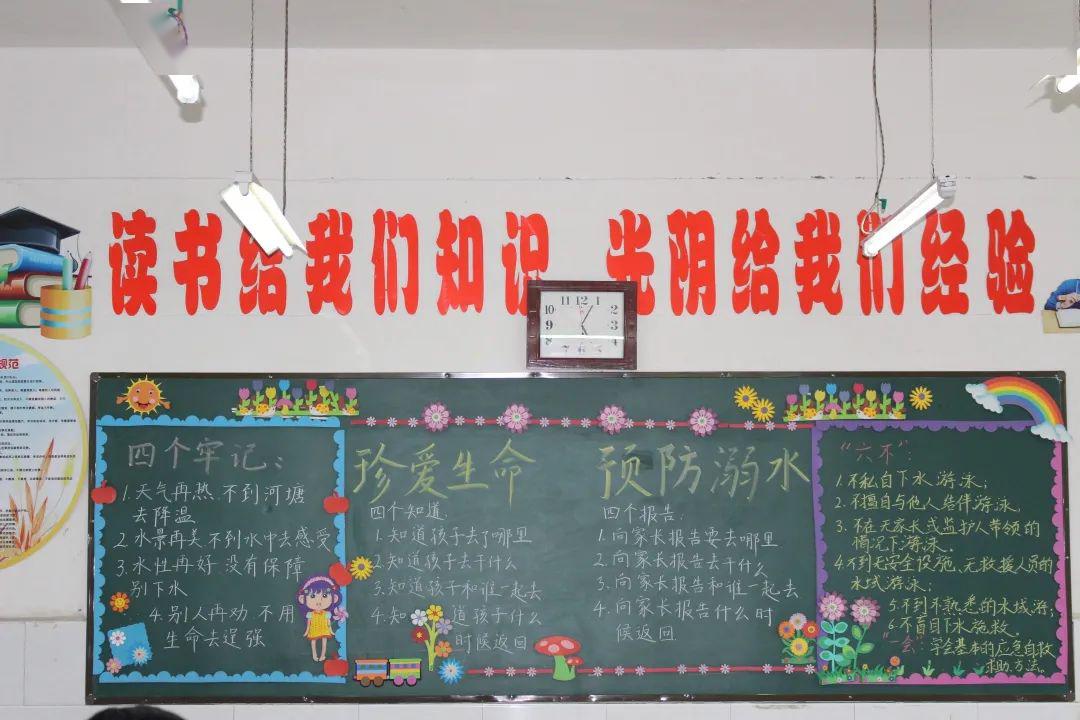 读书给我们知识 光阴给我们经验
规范
11 12 1
10 2
9 3
8
珍爱生命 预防溺水
四个牢记:
1.天气再热.不到河塘
去降温
2.水景再美.不到水中去感受
3.水性再好.没有保障
别下水
4.别人再劝.不用
生命去逞强
四个知道:
1.知道孩子去了哪里
2.知道孩子去干什么
3.知道孩子和谁一起去
4.知道孩子什么
时候返回
四个报告:
1.向家长报告要去哪里
2.向家长报告去干什么
3.向家长报告和谁一起去
4.向家长报告什么时
候返回
“六不”:
1.不私自下水游泳;
2.不擅自与他人结伴游泳.
3.不在无家长或监护人带领的
情况下游泳.
4.不到无安全设施、无救援人员的
水域游泳;
5.不到不熟悉的水域游;
6.不盲目下水施救.
“一会:学会基本的应急自救
求助方法.